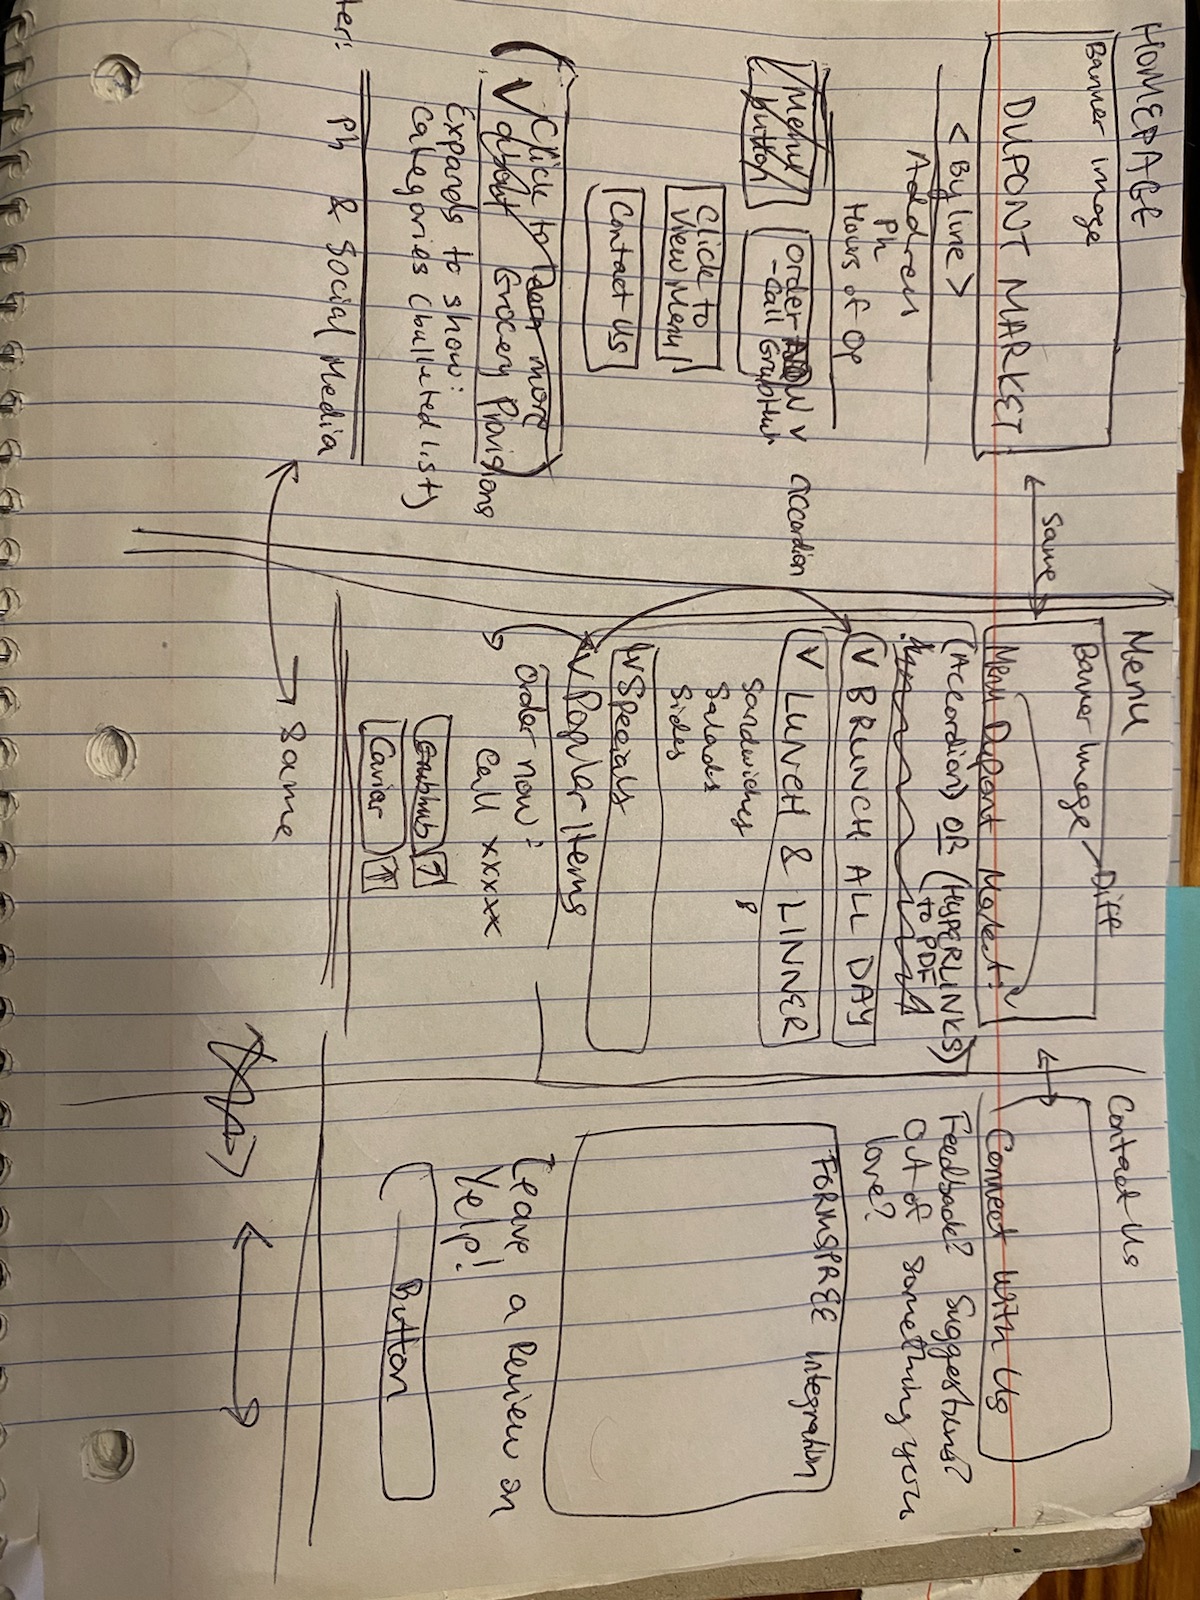 HOMEPAGE
Banner image
DUPONT MARKET
<Byline>
Address
Ph
Hours of Op
Menu
button
Order NOW v
-Call GrubHub
accordion
Click to
View Menu
Contact Us
Click to learn more
v about Grocery Provisions
Expands to show:
Categories (bulleted list)
Ph & Social Media
ter:
Same
Menu
Banner Image Diff
Menu Dupont Market:
(Accordion) OR (HYPERLINKS)
to PDF
v BRUNCH ALL DAY
v LUNCH & LINNER
Sandwiches
Salads
Sides
v Specials
v Popular Items
Order now:
Call xxxxx
Grubhub ↑
Caviar ↑
Same
Contact Us
Connect With Us
Feedback? Suggestions?
Out of something you
love?
FORMSPREE Integration
Leave a Review on
Yelp!
Button